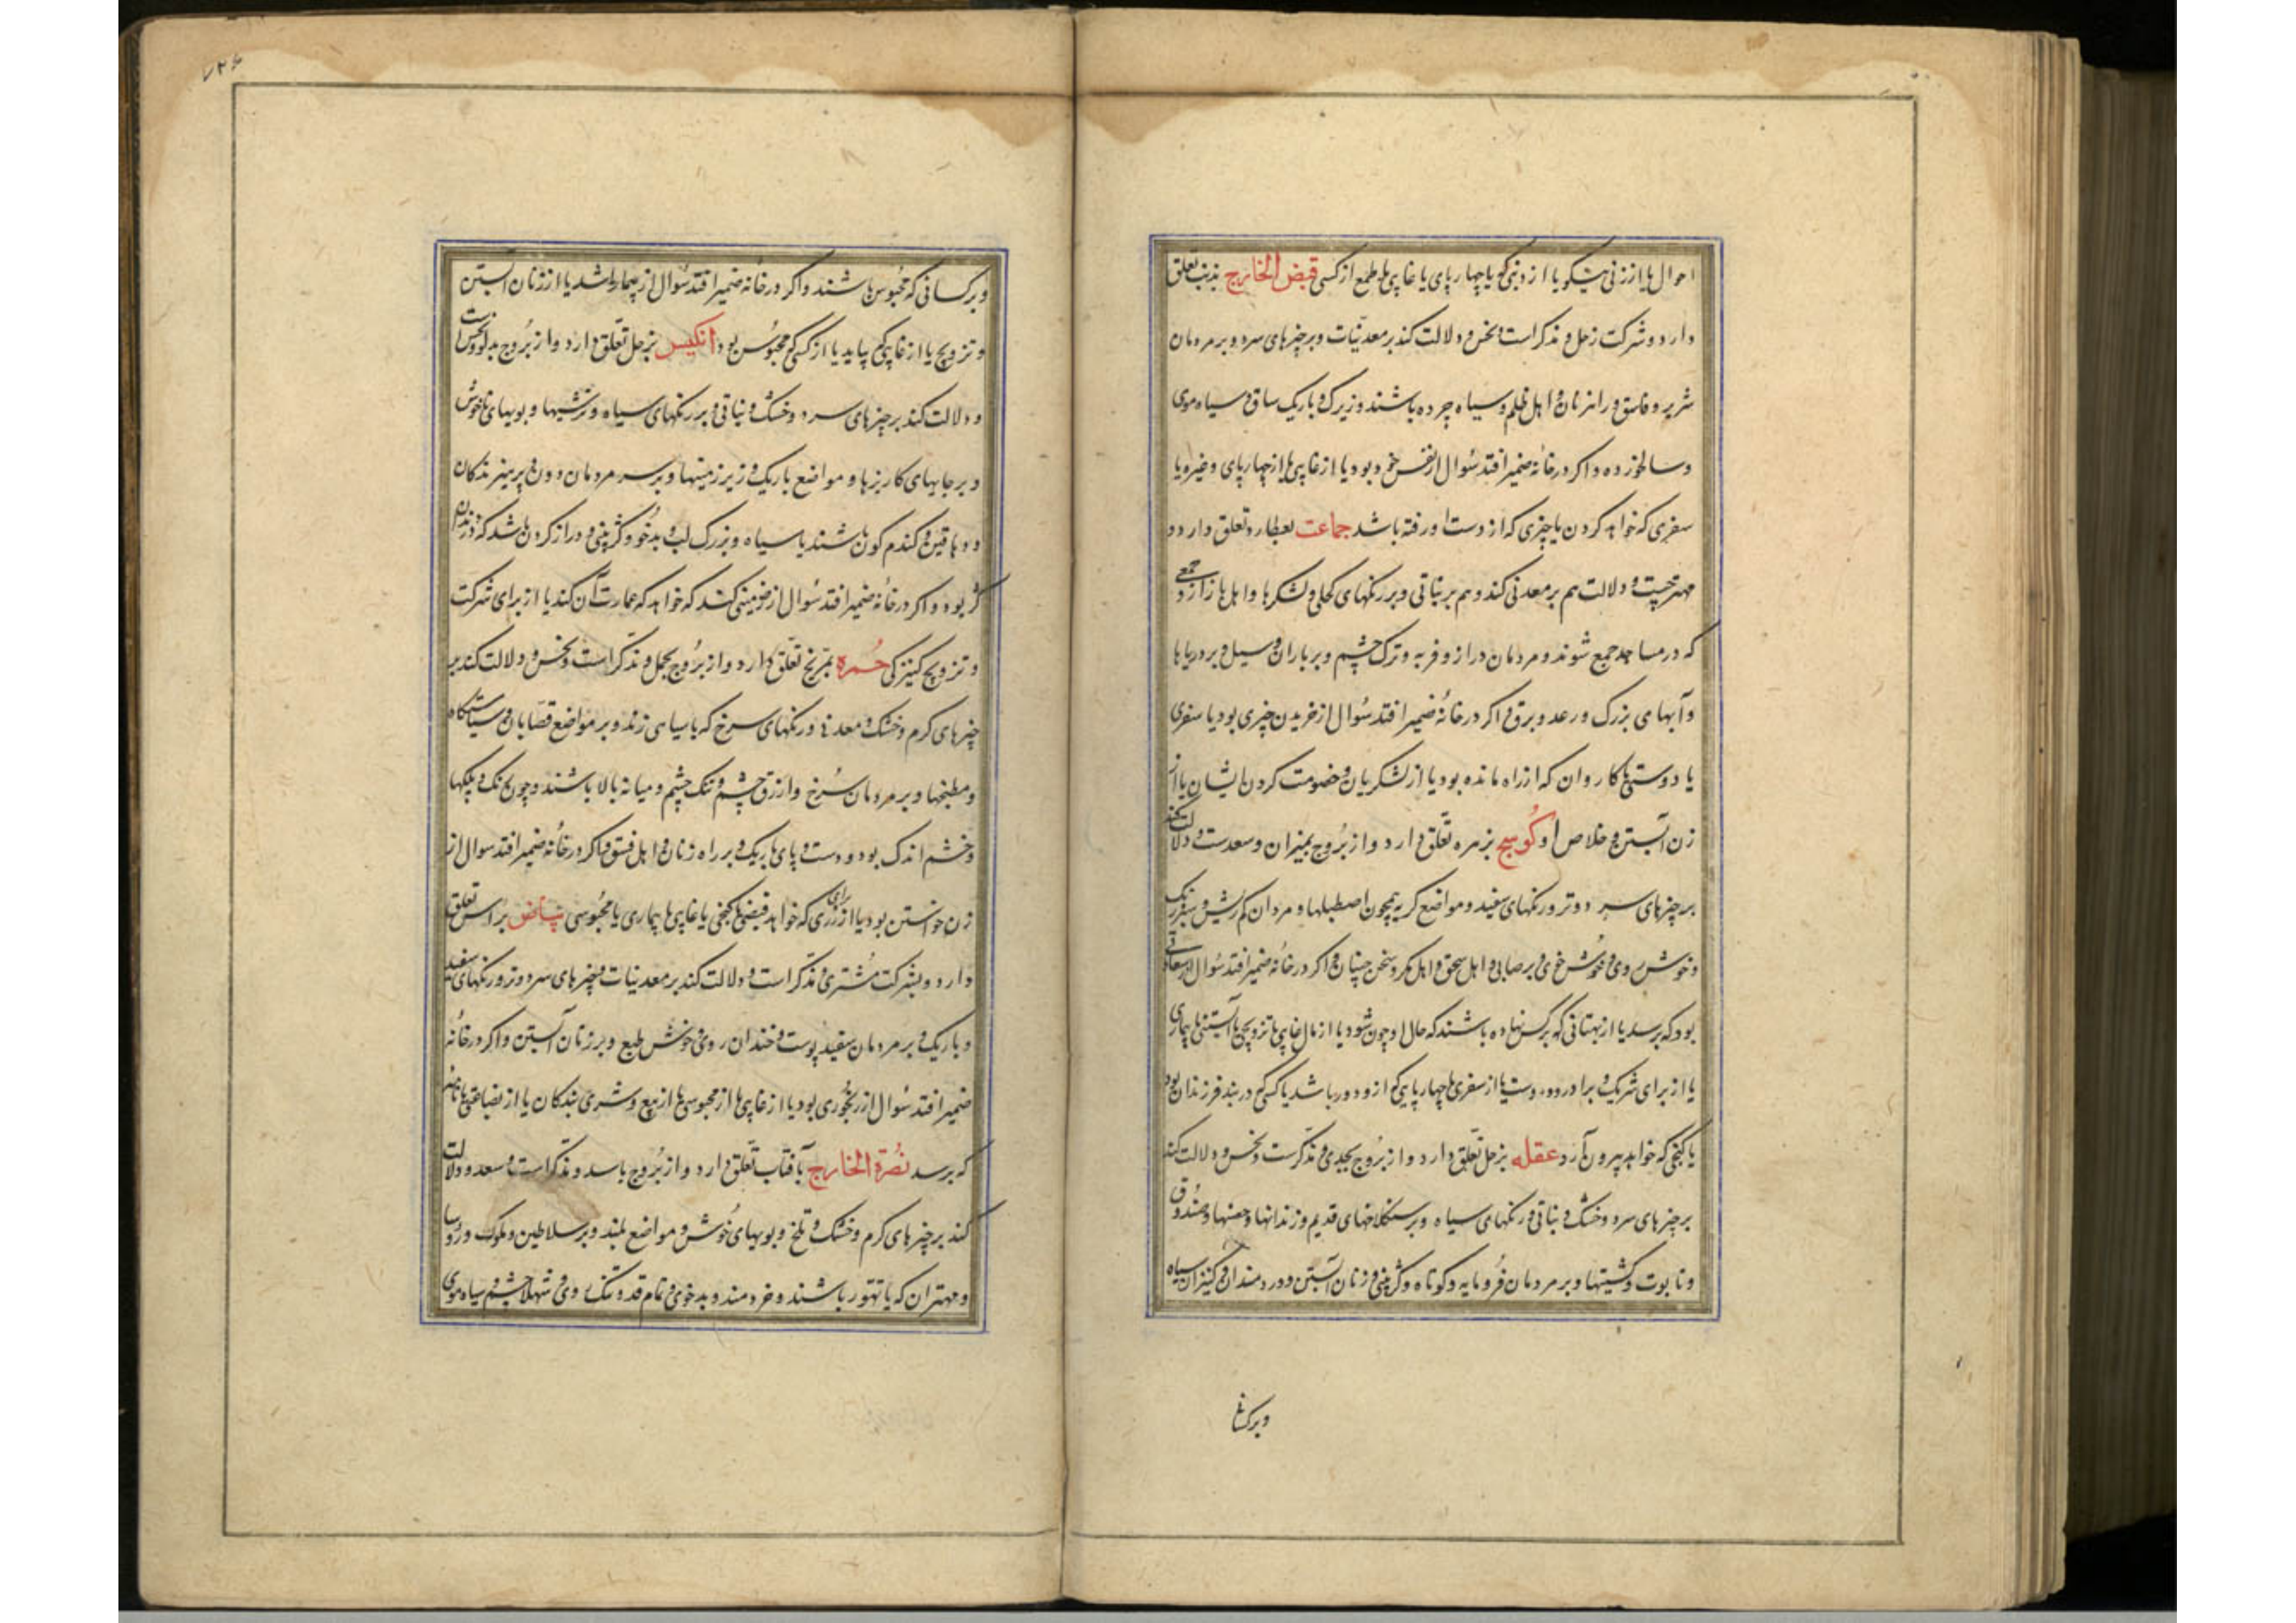 احوال یا از زنی نیکو یا از دینی که یا چهارپای یا غایبی یا طمع از کسی قبض الخارج بذنب تعلق
دارد و شرکت زحل و مذکر است و نحس و دلالت کند بر معدنیات و بر چیزهای سرد و بر مردمان
شریر و فاسق و راهزنان و اهل ظلم و سیاه چرده باشند و زیرک و باریک ساق و سیاه موی
وسالخورده و اکر در خانهٔ ضمیر افتد سُوال از نفس خود بود یا از غایبی یا از چهارپای و غیره یا
سفری که خواهد کردن یا چیزی که از دست او رفته باشد جماعت بعطارد تعلق دارد و
دلالت هم بر معدنی کند و هم بر نباتی و بر رنکهای کحلی و لشکرها و اهل بازار و جمعی
که در مساجد جمع شوند و مردمان دراز و فربه و ترک چشم و بر باران و سیل و بر دریاها
وآبهای بزرک و رعد و برق و اکر در خانهٔ ضمیر افتد سُوال از خریدن چیزی بود یا سفری
یا دوستی یا کاروان که از راه مانده بود یا از لشکریان و خصومت کردن ایشان یا از
زن آبستن و خلاص او کوسج بزهره تعلّق دارد و از بُروج بمیزان و سعدست و دلالت کند
بر چیزهای سرد و تر و رنکهای سفید و مواضع کریه همچون اصطبلها و مردان کم ریش و سبزرنک
وخوش روی و خُوش خوی و بر صابی و اهل سحق و اهل مکر و سخن چینان و اکر در خانهٔ ضمیر افتد سُوال از
بود که برسد یا از بهتانی که بر کس نهاده باشند که حال او چون شود یا از مال غایبی یا تزویجی یا آبستنی یا بیماری
یا از برای شریک و برادر و دوست یا از سفری یا چهارپایی که ازو دور باشد یا کسی که در بند فرزندان بود
یا کنجی که خواهد بیرون آرد عقله بزحل تعلّق دارد و از بُروج بجدی و مذکّرست و نحس و دلالت کند
بر چیزهای سرد و خشک و نباتی و رنکهای سیاه و بر سنکلاخهای قدیم و زندانها و حصنها و صندوق
و تابوت و کشتیها و بر مردمان فُرومایه و کوتاه و کژ بینی و زنان آبستن و دردمندان و کنیزان سیاه
وبرکسا
و بر کسانی که محبُوس باشند و اکر در خانهٔ ضمیر افتد سُوال از بیمار باشد یا از زنان آبستن
و تزویج یا از غایبی که بیاید یا از کسی که محبُوس بود انکیس بزحل تعلّق دارد و از بُروج بدلو و نحس است
و دلالت کند بر چیزهای سرد و خشک و نباتی و بر رنکهای سیاه و ترشیها و بویهای ناخوش
و بر جایهای کاریزها و مواضع باریک و زیر زمینها و بر سر مردمان دون و پریبنرندکان
و دهاقین و کندم کون باشند یا سیاه و بزرک لب و بدخُو و کژ بینی و دراز کردن باشد که دندان
کژ بود و اکر در خانهٔ ضمیر افتد سُوال از زمینی کند که خواهد که عمارت آن کند یا از برای شرکت
و تزویج کنیزکی حُمره بمرّیخ تعّلق دارد و از بُروج بحمل و مذکّر است و نحس و دلالت کند بر
چیزهای کرم و خشک و معدنی و رنکهای سرخ که با سیاهی زند و بر مواضع قصّابان و سیاستکاه
و مطبخها و بر مردمان سُرخ و ازرق چشم و تنک چشم و میانه بالا باشند و چون بخندد پلکها
و خشم اندک بود و دست و پای باریک و بر راه زنان و اهل فسق و اکر در خانهٔ ضمیر افتد سوال از
زن خواستن بود یا از زری که خواهد قبض یا کنجی یا غایبی یا بیماری یا محبُوسی بیاض براس تعلق
دارد و بشرکت مُشتری و مذکّر است و دلالت کند بر معدنیات و چیزهای سرد و تر و رنکهای سفید
و باریک و بر مردمان سفید پوست و خندان روی و خوش طبع و بر زنان آبستن و اکر در خانهٔ
ضمیر افتد سُوال از رنجُوری بود یا از غایبی یا از محبوسی یا از بیع و شری بندکان یا از بضاعتی یا نامهٔ
که برسد نُصرَة الخارج بآفتاب تعّلق دارد و از بُروج باسد و مذکّر است و سعد و دلالت
کند بر چیزهای کرم و خشک و تلخ و بویهای خُوش و مواضع بلند و بر سلاطین و ملوک و رُوسا
و مهتران که با تهور باشند و خردمند و بدخوی و تمام قد و تنک روی و شهلا چشم و سیاه موی